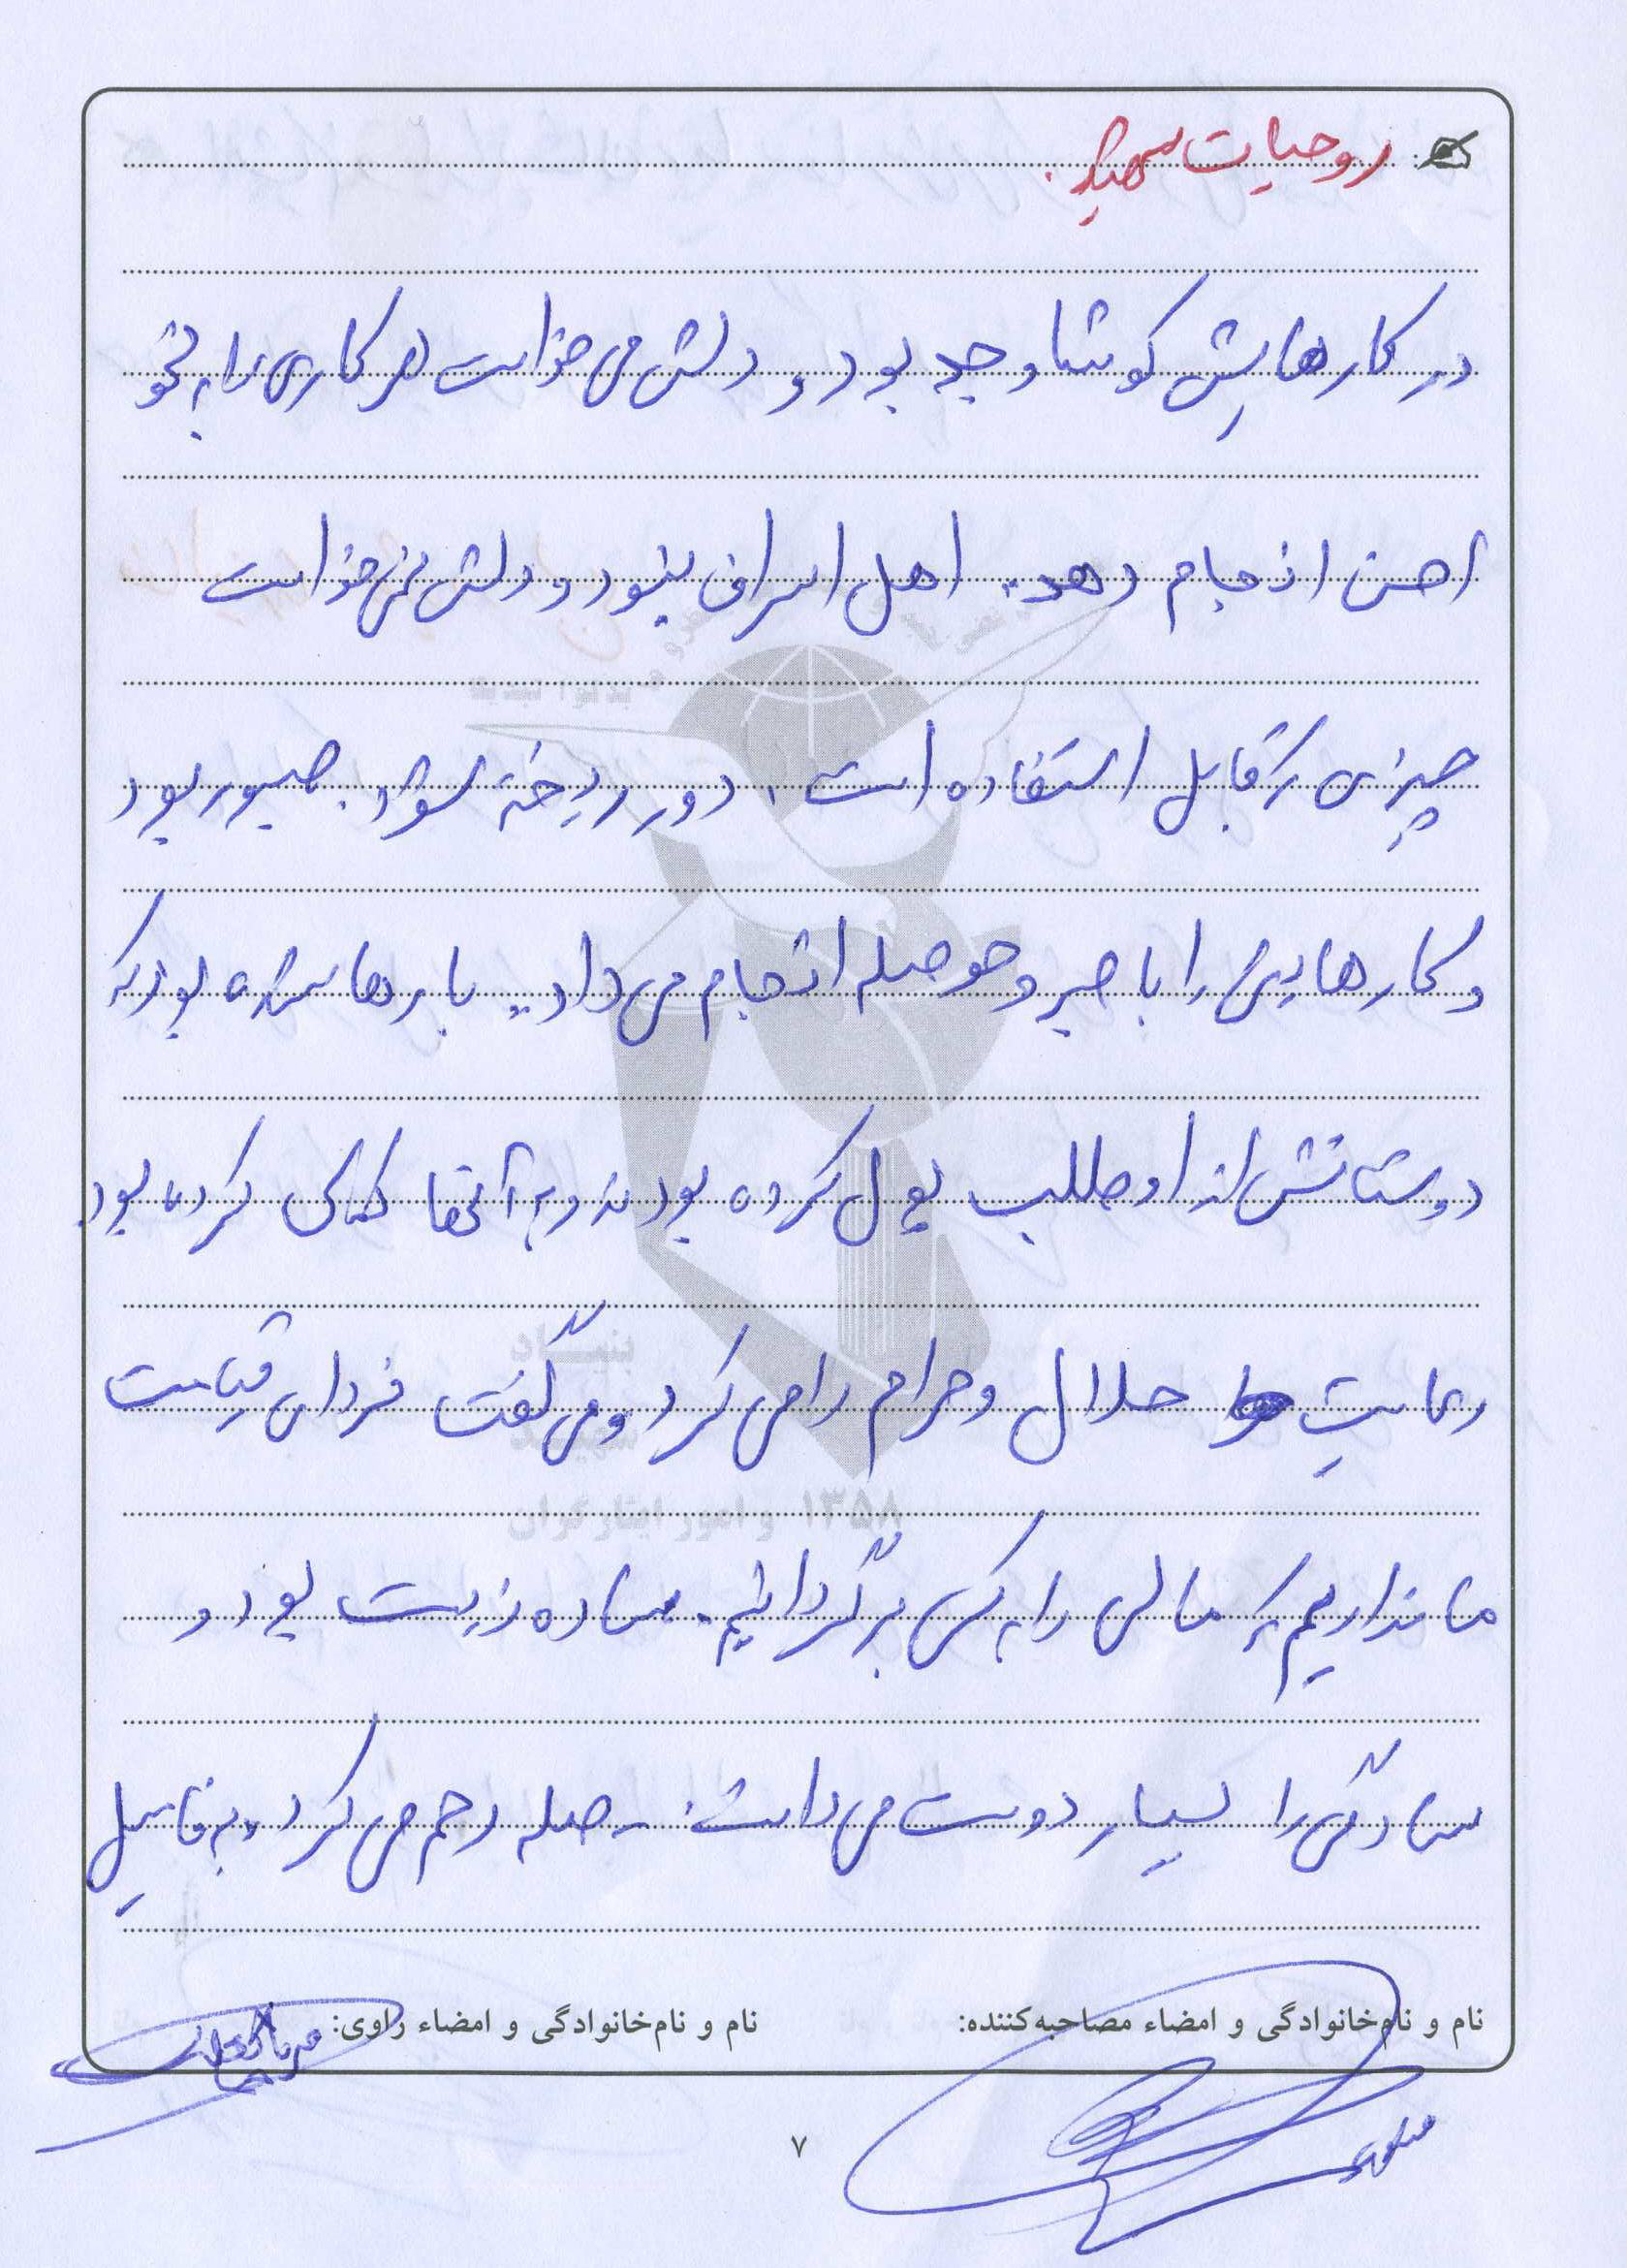 روحیات شهید.
در کارهایش کوشا و جد بود و دلش می خواست هر کاری را به نحو
احسن انجام دهد. اهل اسراف نبود و دلش نمی خواست
چیزی که قابل استفاده است، دور ریخته شود. صبور بود
و کارهایش را با صبر و حوصله انجام می داد. بارها شده بود که
دوستانش از او طلب پول کرده بودند و به آنها کمک کرده بود.
رعایت حلال و حرام را می کرد و می گفت فردای قیامت
ما نداریم که مالی را به کسی برگردانیم. ساده زیست بود و
سادگی را بسیار دوست می داشت. صله رحم می کرد و به فامیل
بنیاد
شهید
و امور ایثارگران ۱۳۵۸
نام و نام‌خانوادگی و امضاء مصاحبه‌کننده:
نام و نام‌خانوادگی و امضاء راوی:
۷